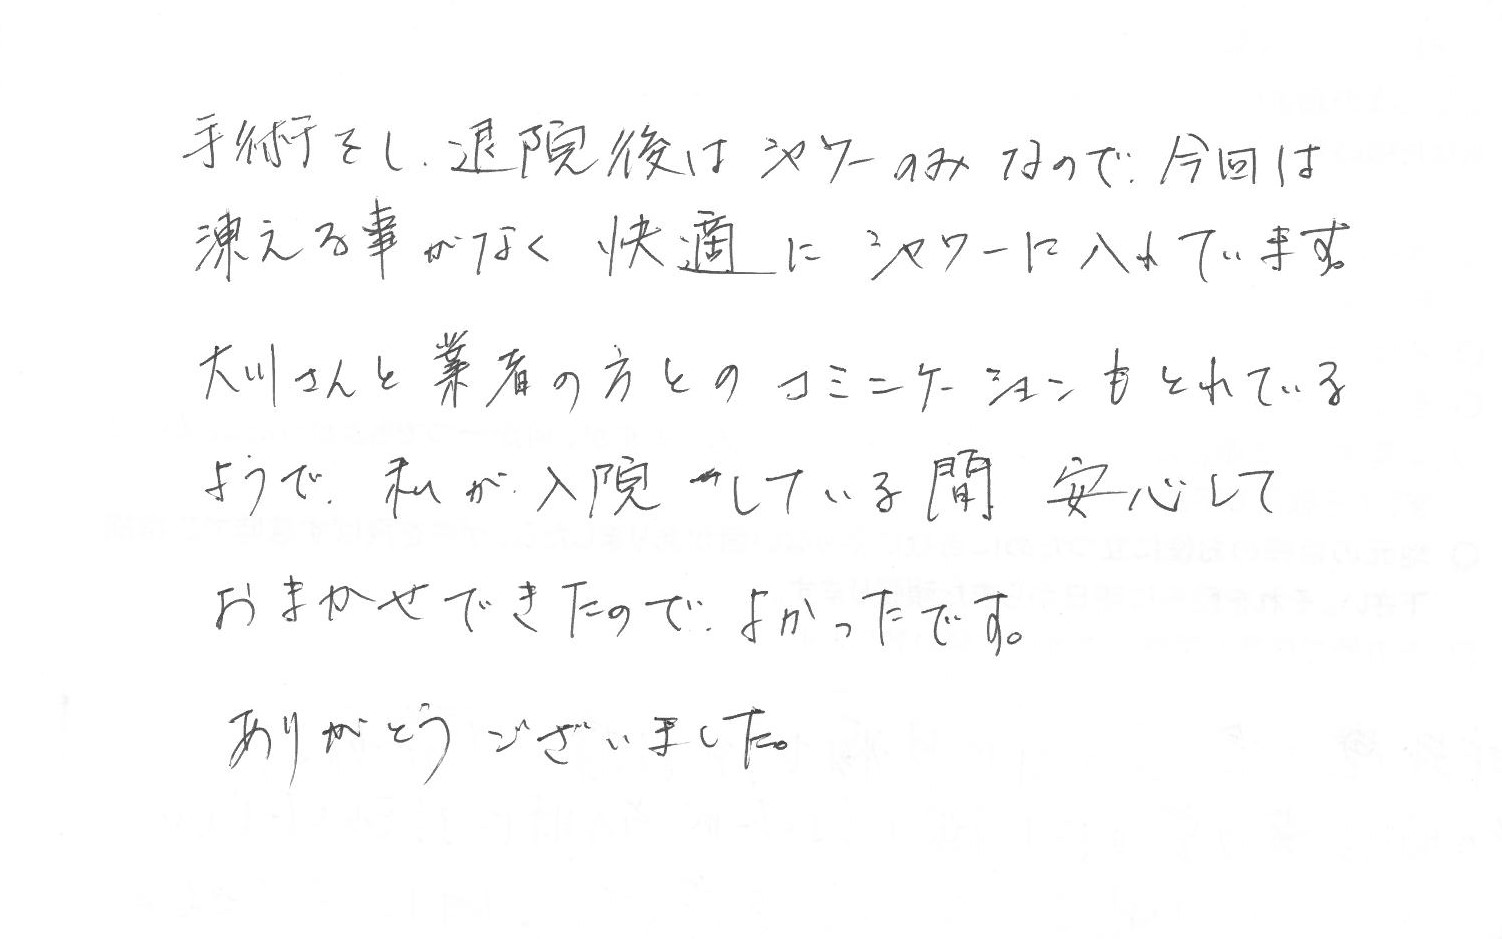 手術をし、退院後はシャワーのみなので、今回は
凍える事がなく快適にシャワーに入れています。
大川さんと業者の方とのコミニケーションもとれている
ようで、私が入院している間安心して
おまかせできたので、よかったです。
ありがとうございました。